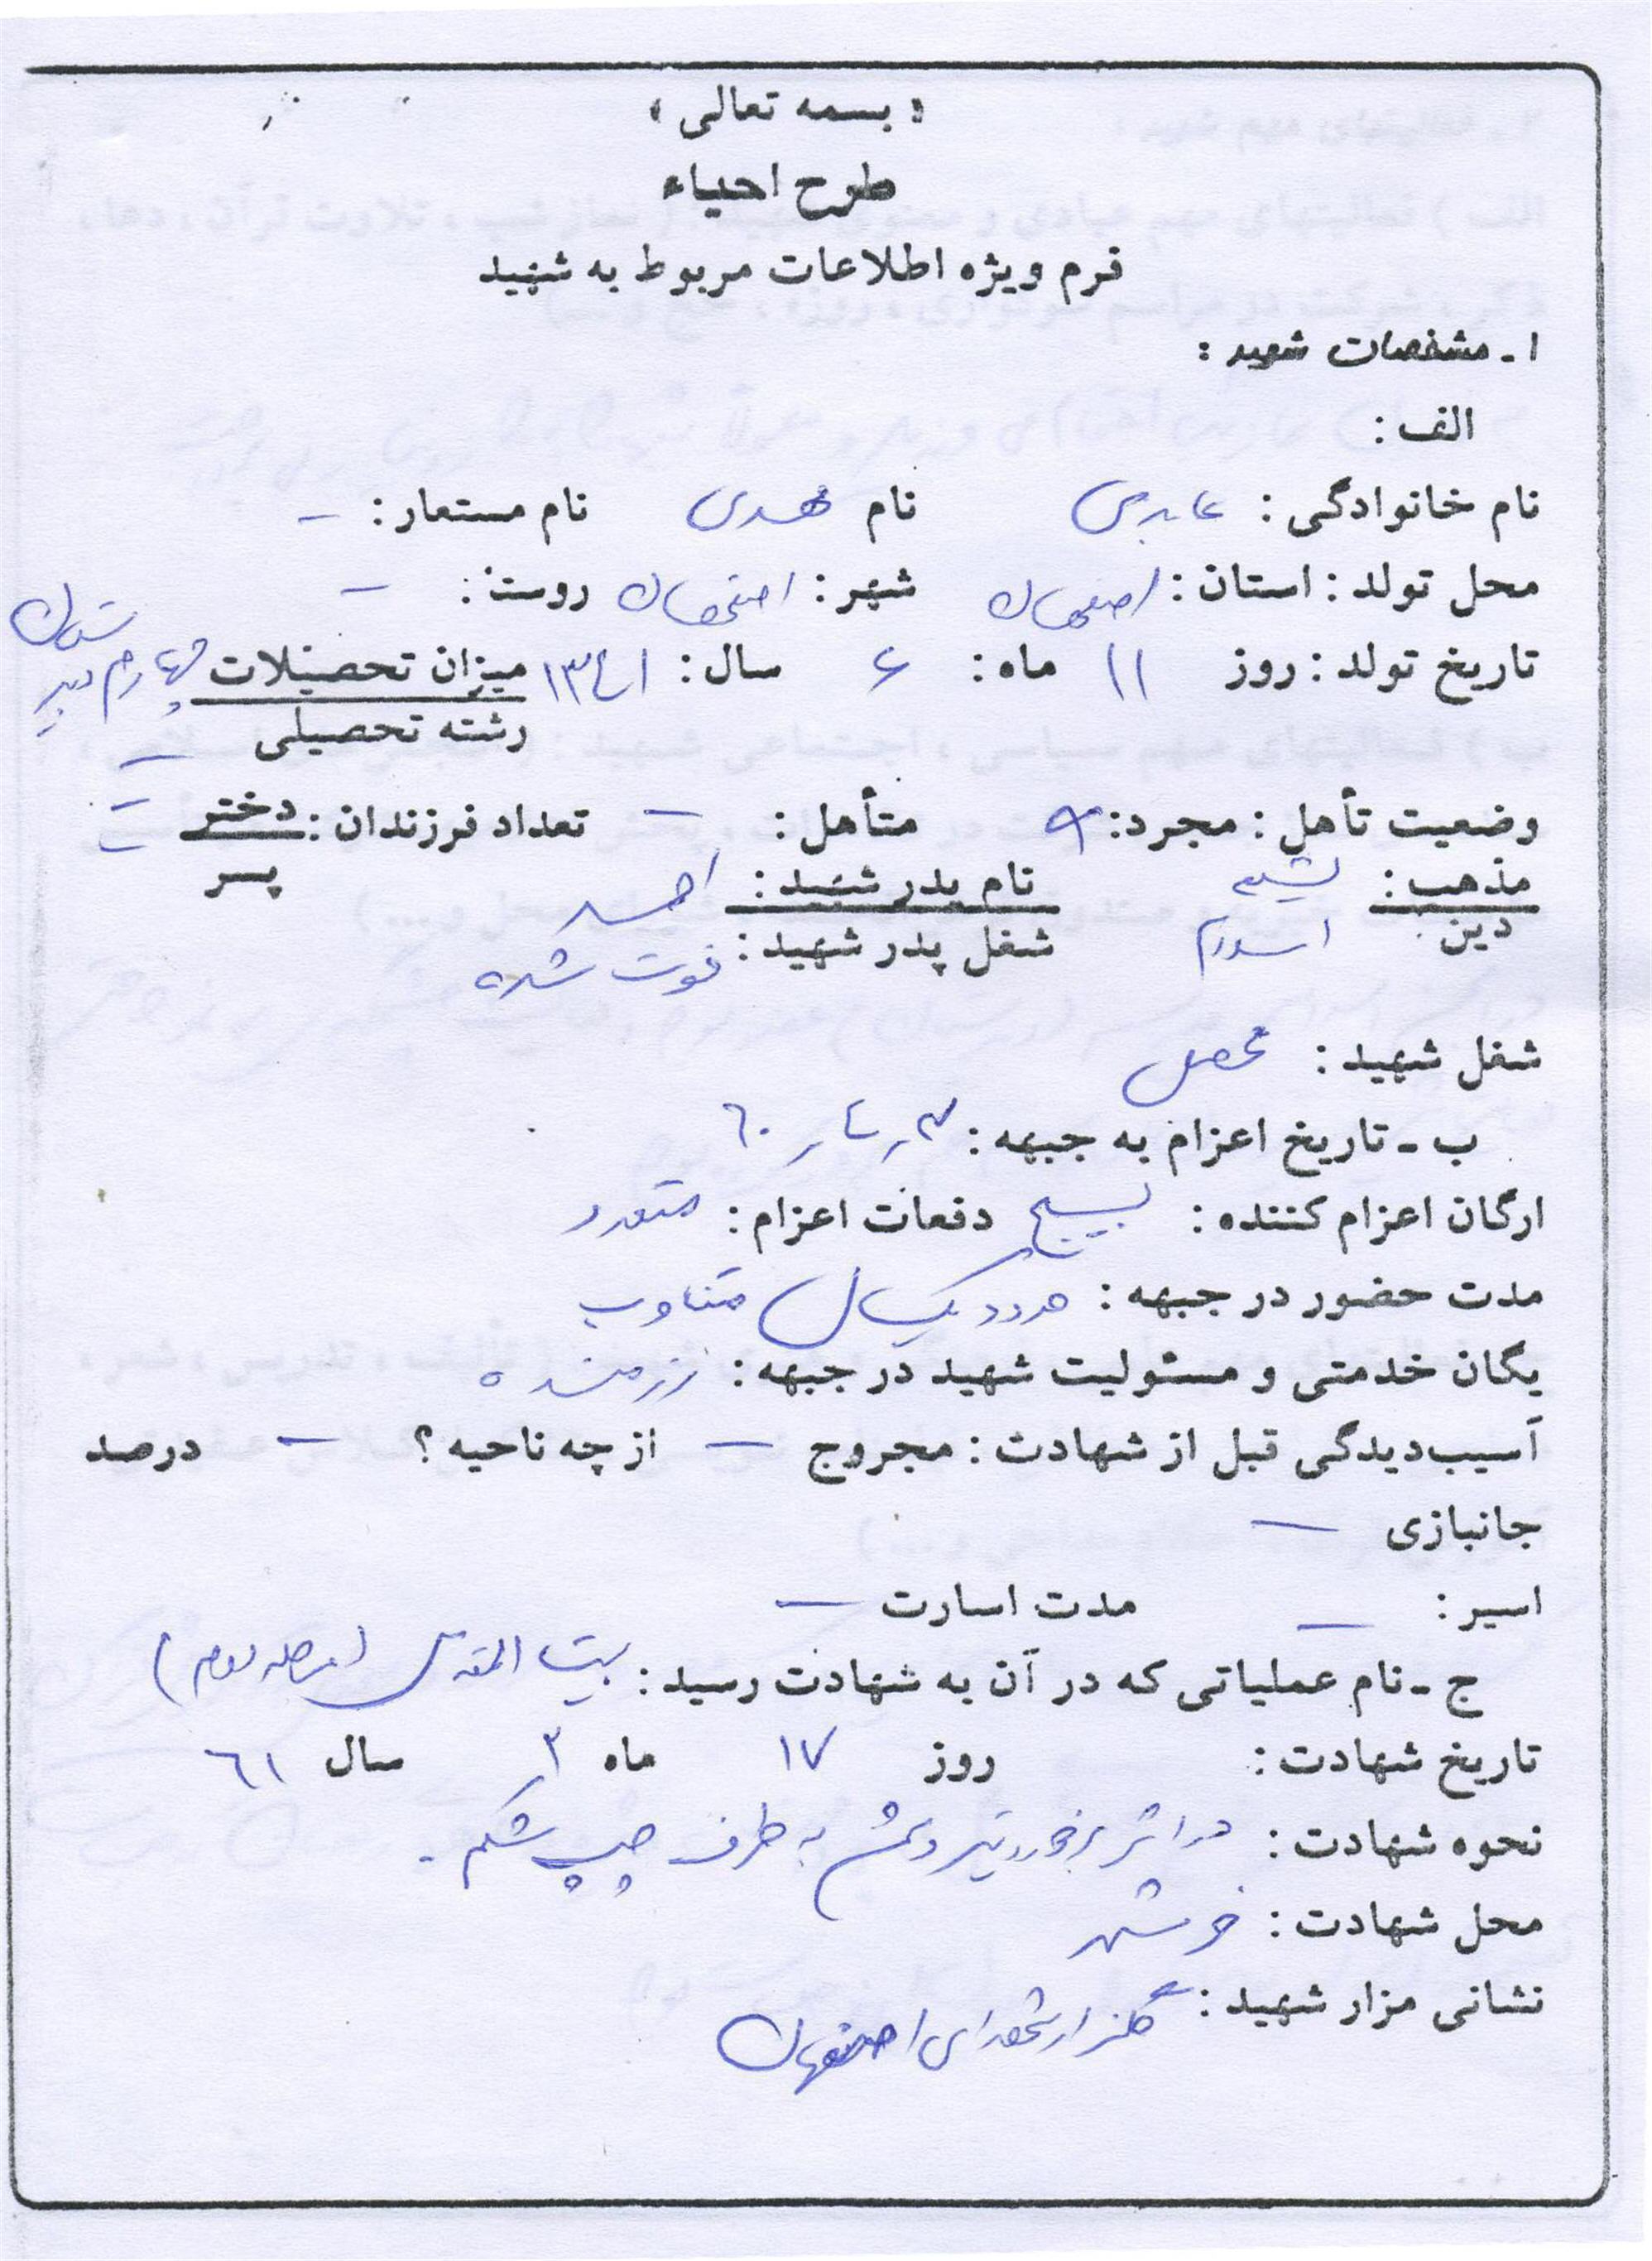 « بسمه تعالی »
طرح احیاء
فرم ویژه اطلاعات مربوط به شهید
۱ ـ مشخصات شهید :
الف :
نام خانوادگی : عابدی نام مهدی نام مستعار : –
محل تولد : استان : اصفهان شهر : اصفهان روستا : –
تاریخ تولد : روز ۱۱ ماه : ۶ سال : ۱۳۴۱ میزان تحصیلات چهارم دبیرستان
رشته تحصیلی –
وضعیت تأهل : مجرد : متأهل : – تعداد فرزندان : دختر –
پسر –
مذهب : تشیع نام پدر شهید : احمد
دین اسلام شغل پدر شهید : فوت شده
شغل شهید : محصل
ب ـ تاریخ اعزام به جبهه : ۶۰
ارگان اعزام کننده : بسیج دفعات اعزام : متعدد
مدت حضور در جبهه : حدود یکسال متناوب
یگان خدمتی و مسئولیت شهید در جبهه : رزمنده
آسیب‌دیدگی قبل از شهادت : مجروح – از چه ناحیه ؟ – درصد
جانبازی –
اسیر : – مدت اسارت –
ج ـ نام عملیاتی که در آن به شهادت رسید : بیت المقدس (مرحله دوم)
تاریخ شهادت : روز ۱۷ ماه ۲ سال ۶۱
نحوه شهادت : در اثر برخورد تیر دشمن به طرف چپ شکم .
محل شهادت : خرمشهر
نشانی مزار شهید : گلزار شهدای اصفهان